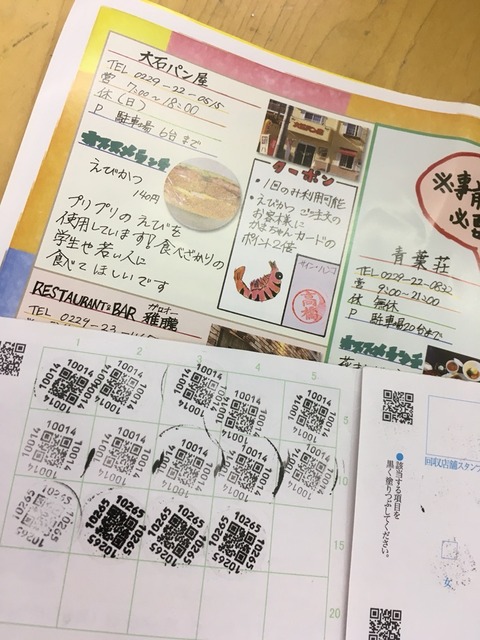 大石パン屋
TEL 0229-22-0515
営 7:00~18:00
休 (日)
P 駐車場 6台まで
オススメランチ
えびかつ
140円
プリプリのえびを
使用しています!食べざかりの
学生や若い人に
食べてほしいです
クーポン
・1回のみ利用可能
・えびかつご注文の
お客様に
かまちゃんカードの
ポイント2倍
サイン・ハンコ
高橋
RESTAURANT&BAR 雅朧
ガロォー
TEL 0229-23-
※事前
必要
青葉荘
TEL 0229-22-0832
営 9:00~21:00
休 無休
P 駐車場20台まで
オススメランチ
1 2 3 4 5
5
10
15
20
10014
10014
10014
10014
10014
10014
10014
10014
10014
10014
10265
10265
10265
10265
回収店舗スタンプ
●該当する項目を
黒く塗りつぶしてください。
女